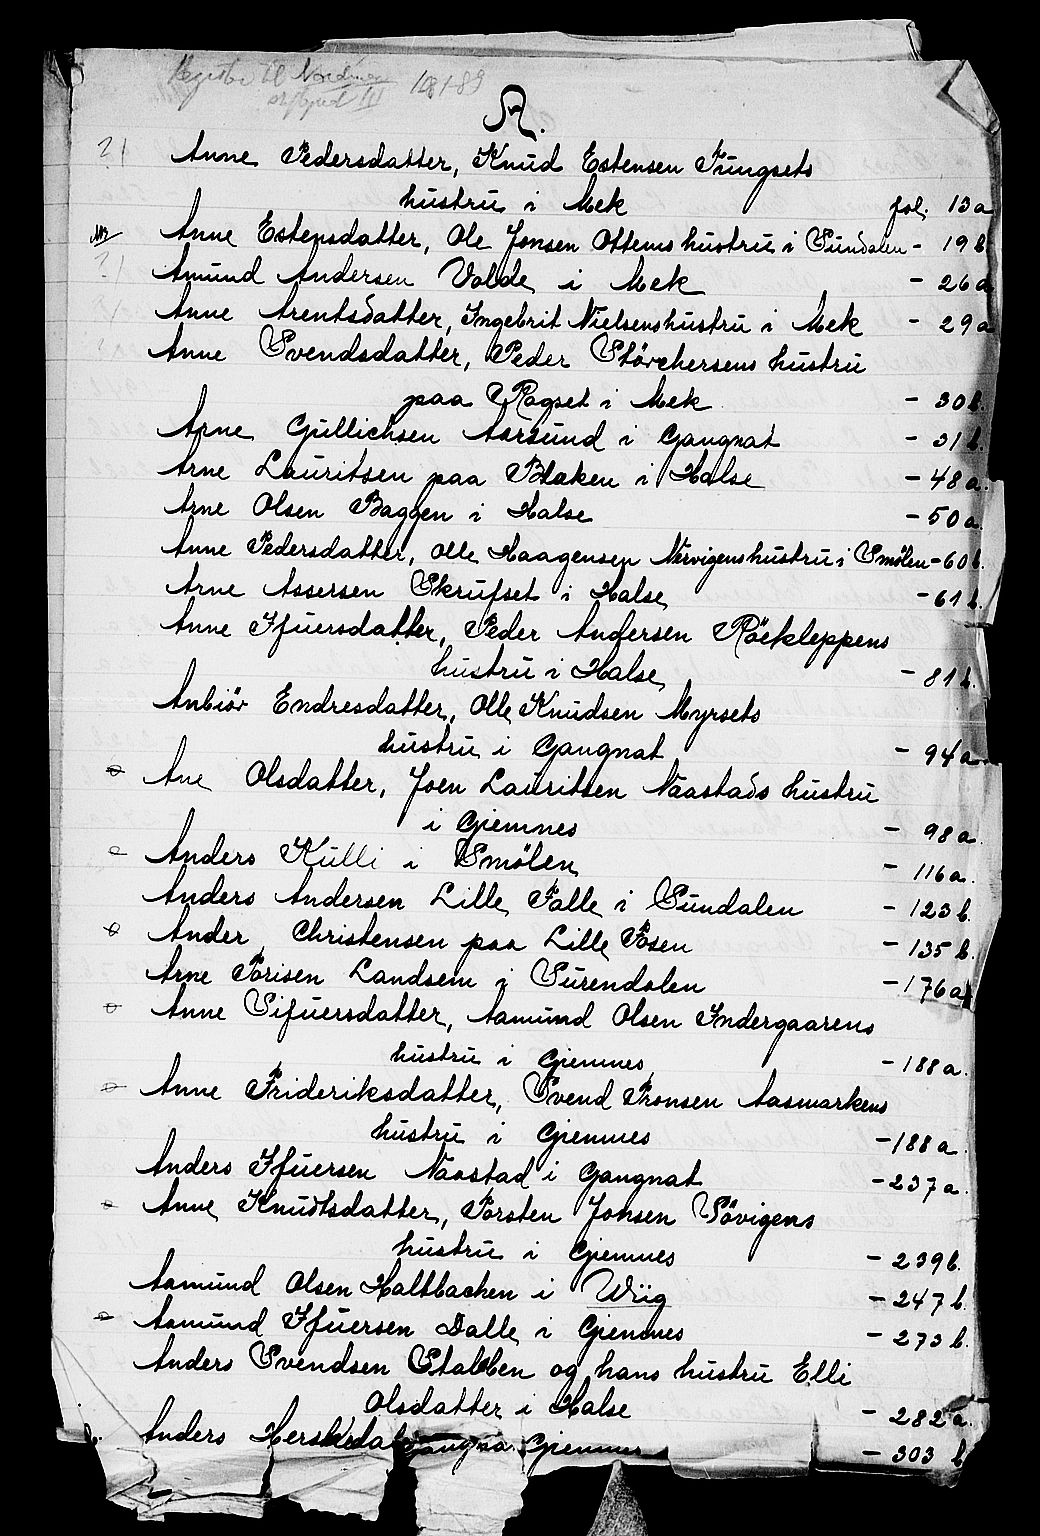 Register til Nordmør
III 1781-89
A.
21 Anne Pedersdatter, Knud Estensen Tungsets
hustru i Mek fol. 13a
Anne Estensdatter, Ole Jonsen Ottems hustru i Sundalen - 19b
21 Amund Andersen Volde i Mek - 26a
Anne Arentsdatter, Ingebrit Nielsens hustru i Mek - 29a
Anne Svendsdatter, Peder Störchersens hustru
paa Rogset i Mek - 30b.
Arne Gullichsen Aarsund i Gangnat - 31b.
Arne Lauritsen paa Blaken i Halse - 48a.
Arne Olsen Baggen i Halse - 50a.
Anne Pedersdatter, Olle Haagensen Nervigens hustru i Smölen - 60b.
Arne Assersen Skrufset i Halse - 61b.
Anne Ifuersdatter, Peder Andersen Röekleppens
hustru i Halse - 81b.
Anbiör Endresdatter, Olle Knudsen Myrsets
hustru i Gangnat - 94a
Ane Olsdatter, Joen Lauritsen Naastads hustru
i Gjemnes - 98a
Anders Kulli i Smölen - 116a.
Anders Andersen Lille Falle i Sundalen - 123b.
Ander Christensen paa Lille Fosen - 135b.
Arne Torisen Landsem i Surendalen - 176a
Anne Sifuersdatter, Aamund Olsen Indergaarens
hustru i Gjemnes - 188a.
Anne Frideriksdatter, Svend Tronsen Aasmarkens
hustru i Gjemnes - 188a.
Anders Ifuersen Naastad i Gangnat - 237a.
Anne Knudtsdatter, Torsten Johsen Sövigens
hustru i Gjemnes - 239b.
Aamund Olsen Haltbachen i Wiig - 247b.
Aamund Ifuersen Dalle i Gjemnes - 273b.
Anders Svendsen Stabben og hans hustru Elli
Olsdatter i Halse - 282a.
Anders Herskedal Gjemnes - 303b